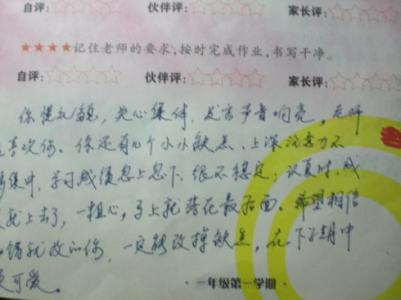 自评:☆☆☆☆☆ 伙伴评:☆☆☆☆☆ 家长评:☆☆☆☆
★★★★记住老师的要求,按时完成作业,书写干净。
自评:☆☆☆☆☆ 伙伴评:☆☆☆☆☆ 家长评:☆☆☆☆
你懂礼貌,关心集体,发言声音响亮。老师
喜欢你。你还有个小小缺点,上课注意力不
集中,学习成绩忽上忽下,很不稳定;认真时,成
就上去了,一粗心,马上就落在最后面。希望相信
错就改的你,一定能改掉缺点,在下学期中
更可爱。
一年级第一学期